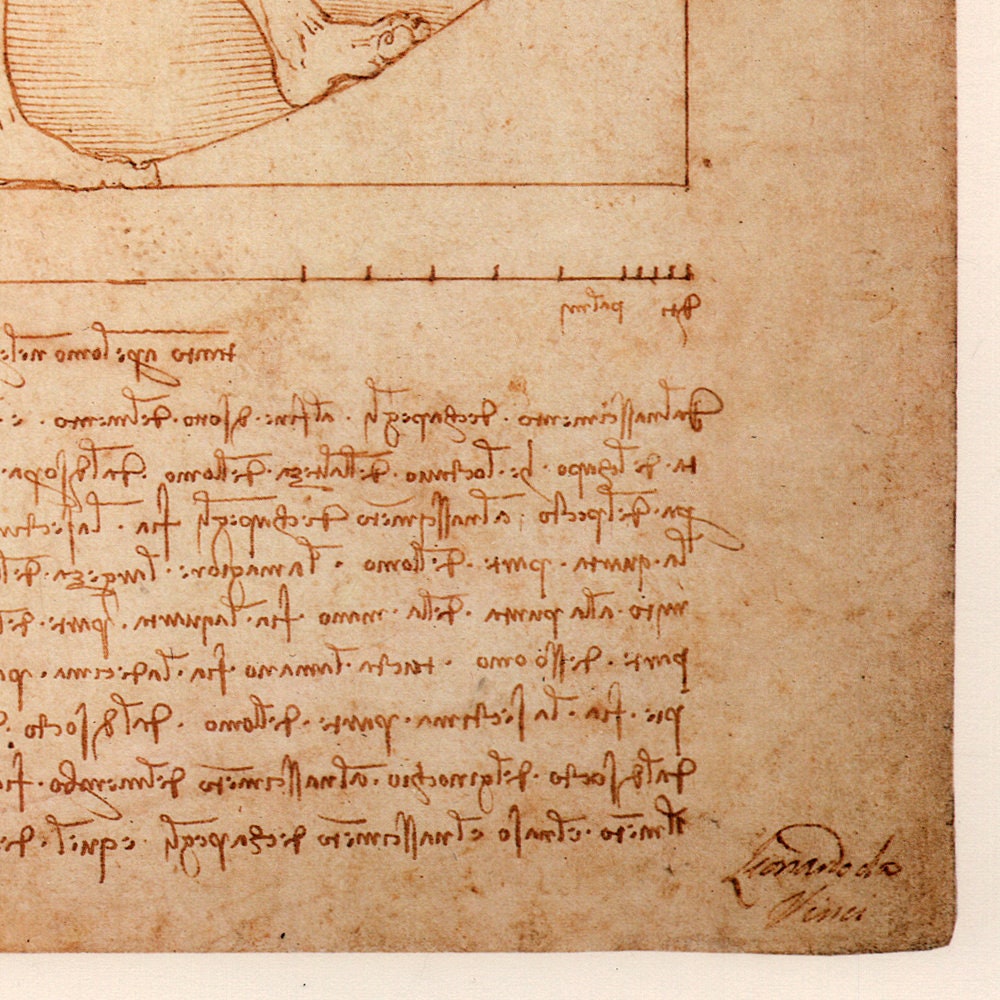 diti palmi
tanto apre lomo nele
Dal nasscimento de chapegli al fine di sotto del mento e
to del chapo he loctavo dell alteza dellomo dal di sopa
pa del pecto al nasscimēto de chapegli fia la sectima
la quarta parte dellomo la magiore largeza delle
mito alla punta della mano fia la quarta parte del
parte desso omo tucta la mano fia la decima pa
pie fia la sectima parte dellomo dal di socto
dal di socto del ginochio al nasscimēto del membro fia
il mēto e l naso e l nasscimēto de chapegli e quel de
Leonardo da
Vinci